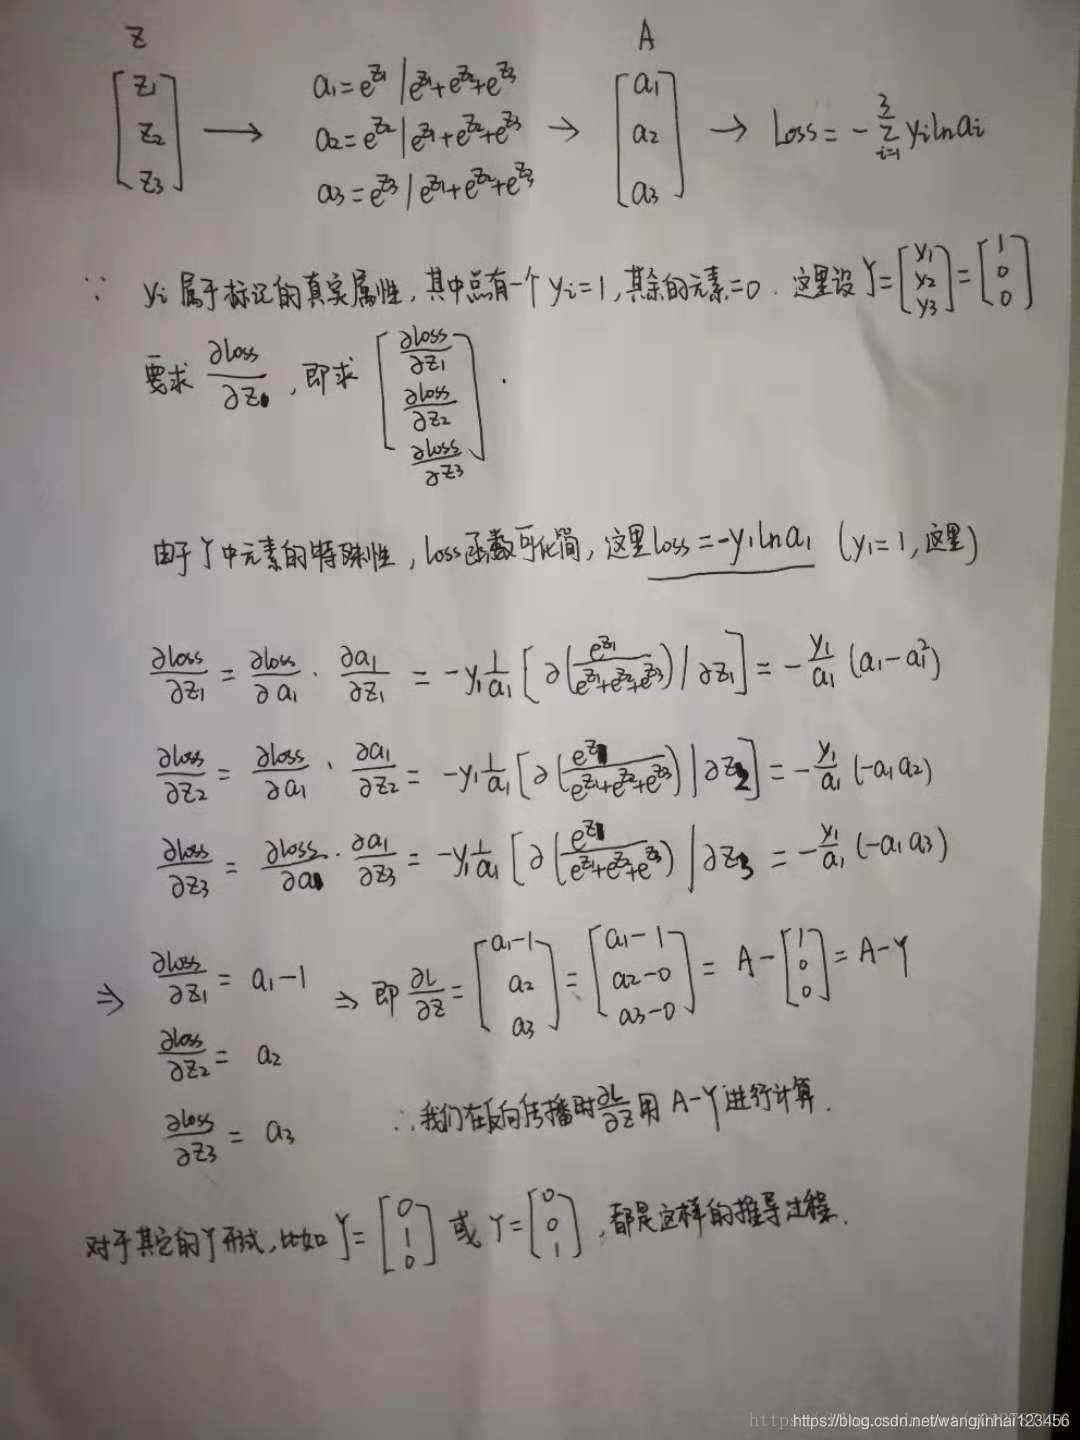 Z A
[z1 z2 z3] → a1 = e^z1 | e^z1+e^z2+e^z3
a2 = e^z2 | e^z1+e^z2+e^z3
a3 = e^z3 | e^z1+e^z2+e^z3
→ [a1 a2 a3] → Loss = -∑_{i=1}^{3} yi ln ai
∵ yi 属于标记的真实属性, 其中只有一个 yi=1, 其余的元素=0. 这里设 Y=[y1 y2 y3]=[1 0 0]
要求 ∂loss/∂z, 即求 [∂loss/∂z1 ∂loss/∂z2 ∂loss/∂z3].
由于Y中元素的特殊性, loss函数可化简, 这里loss = -y1 ln a1 (y1=1, 这里)
∂loss/∂z1 = ∂loss/∂a1 · ∂a1/∂z1 = -y1 1/a1 [∂(e^z1/(e^z1+e^z2+e^z3)) | ∂z1] = - y1/a1 (a1-a1²)
∂loss/∂z2 = ∂loss/∂a1 · ∂a1/∂z2 = -y1 1/a1 [∂(e^z1/(e^z1+e^z2+e^z3)) | ∂z2] = - y1/a1 (-a1 a2)
∂loss/∂z3 = ∂loss/∂a1 · ∂a1/∂z3 = -y1 1/a1 [∂(e^z1/(e^z1+e^z2+e^z3)) | ∂z3 = - y1/a1 (-a1 a3)
⇒ ∂loss/∂z1 = a1-1 ⇒ 即 ∂L/∂Z = [a1-1 a2 a3] = [a1-1 a2-0 a3-0] = A-[1 0 0] = A-Y
∂loss/∂z2 = a2
∂loss/∂z3 = a3 ∴我们在反向传播时∂L/∂Z用 A-Y进行计算.
对于其它的Y形式, 比如 Y=[0 1 0] 或 Y=[0 0 1], 都是这样的推导过程.
https://blog.csdn.net/wangjinhai123456